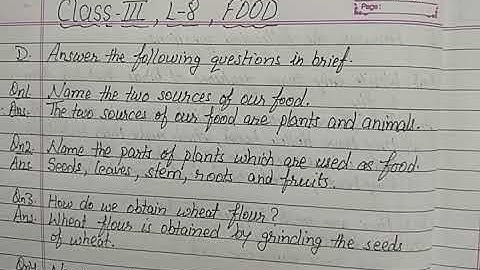 Class-III, L-8, FOOD
Page:
D. Answer the following questions in brief.
Qn1. Name the two sources of our food.
Ans. The two sources of our food are plants and animals.
Qn2. Name the parts of plants which are used as food.
Ans. Seeds, leaves, stem, roots and fruits.
Qn3. How do we obtain wheat flour?
Ans. Wheat flour is obtained by grinding the seeds
of wheat.
Qn4.